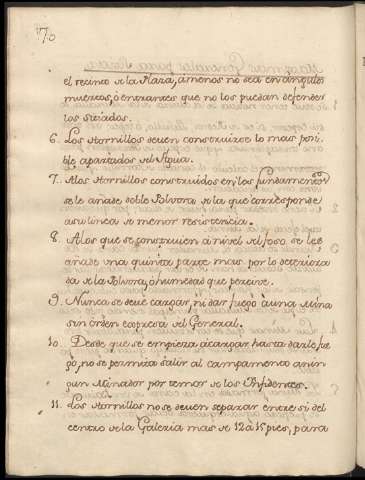 70
el recinto de la Plaza, à menos no sea en àngulos
muertos, ò entrantes que no los puedan defender
los sitiados.
6. Los Hornillos deven construirse lo mas posi-
ble apartados del Agua.
7. A los Hornillos construidos en los fundamentos
se le añade doble Polvora de la que corresponde
a su linea de menor resistencia.
8. A los que se construien à nivel del foso se les
añade una quinta parte mas por lo deteriora-
da de la Polvora, ò humedad que percive.
9. Nunca se deve cargar, ni dar fuego à una Mina
sin òrden expresa del General.
10. Desde que se empieza à cargar hasta darle fue-
go, no se permita salir al campamento à nin-
gun Minador por temor de los Confidentes.
11. Los Hornillos no se deven separar entre si del
centro de la Galeria mas de 12 à 15 pies, para